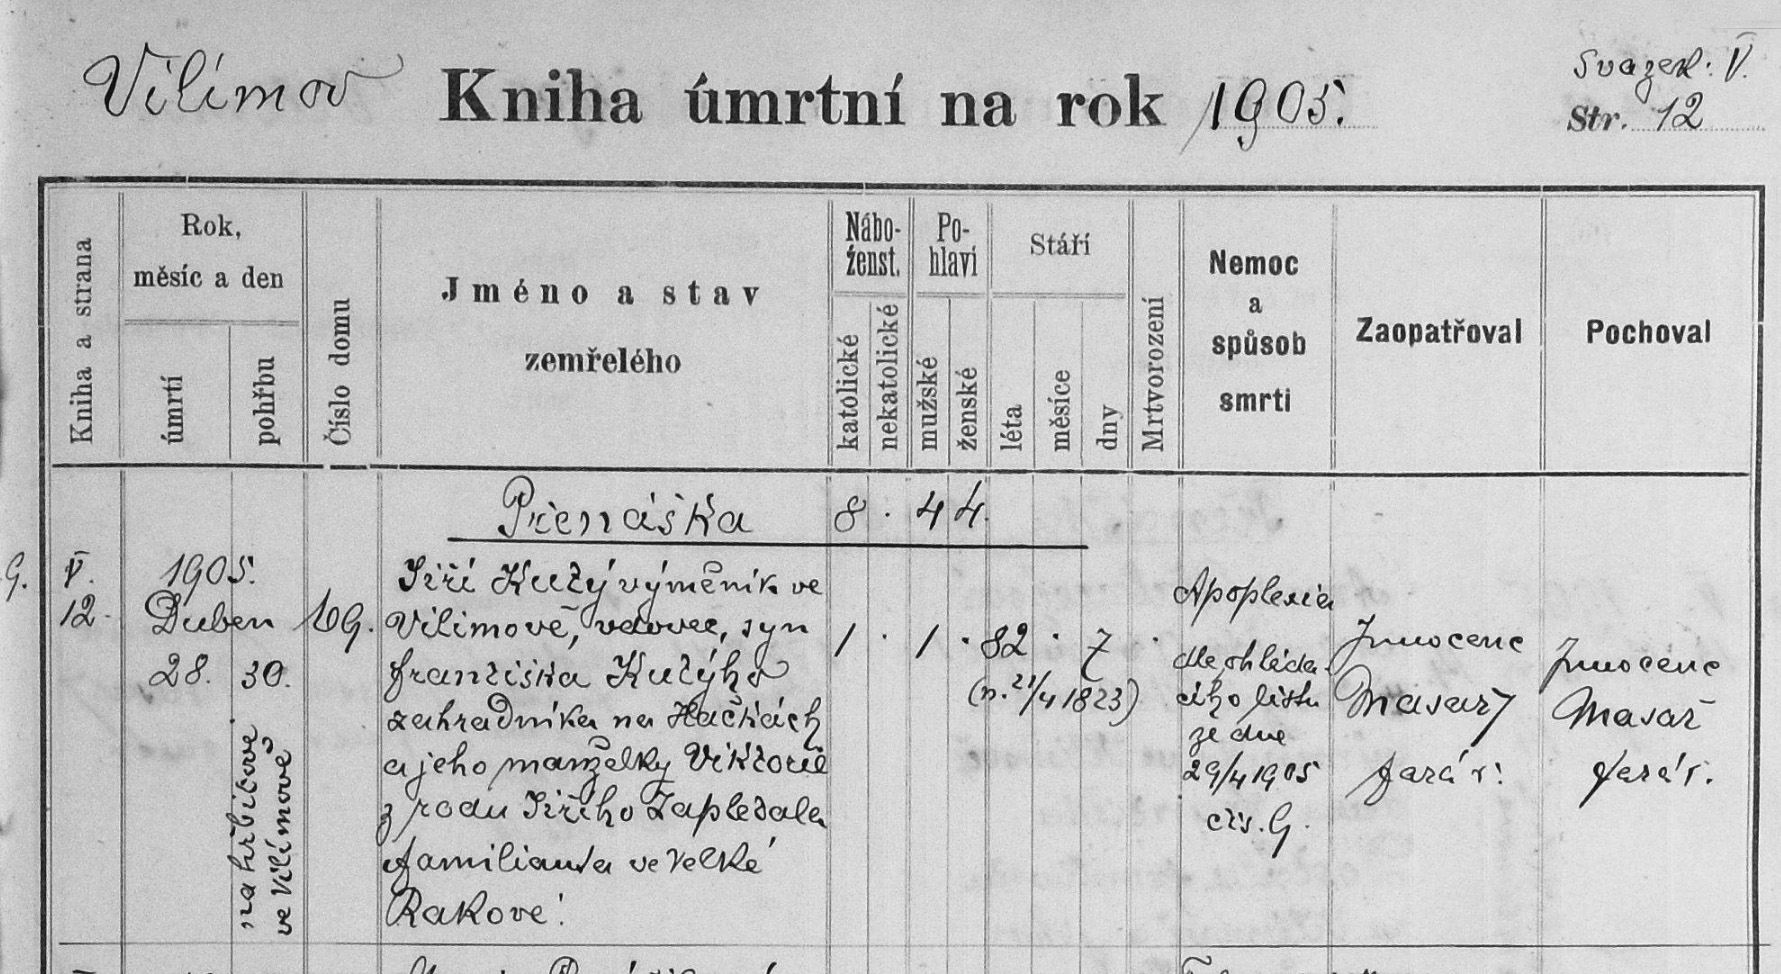 Vilímov Kniha úmrtní na rok 1905.
Svazek: V.
Str. 12
Kniha a strana
Rok,
měsíc a den
úmrtí
pohřbu
Číslo domu
Jméno a stav
zemřelého
Nábo-
ženst.
katolické
nekatolické
Po-
hlaví
mužské
ženské
Stáří
léta
měsíce
dny
Mrtvorození
Nemoc
a
spůsob
smrti
Zaopatřoval
Pochoval
Přenáška 8 · 4 4.
9.
V.
12.
1905.
Duben
28. 30.
na hřbitově
ve Vilímově
Jiří Kutý výměník ve
Vilimově, vdovec, syn
Františka Kutýho
zahradníka na Hačkách
a jeho manželky Viktorie
z rodu Jiřího Zapletala
familianta ve Velké
Rakové.
1 · 1 · 82 · 7 ·
(n. 21/4 1823)
Apoplexia
dle ohléda-
cího listu
ze dne
29/4 1905
čís. 9.
Innocenc
Masař
farář.
Innocenc
Masař
farář.